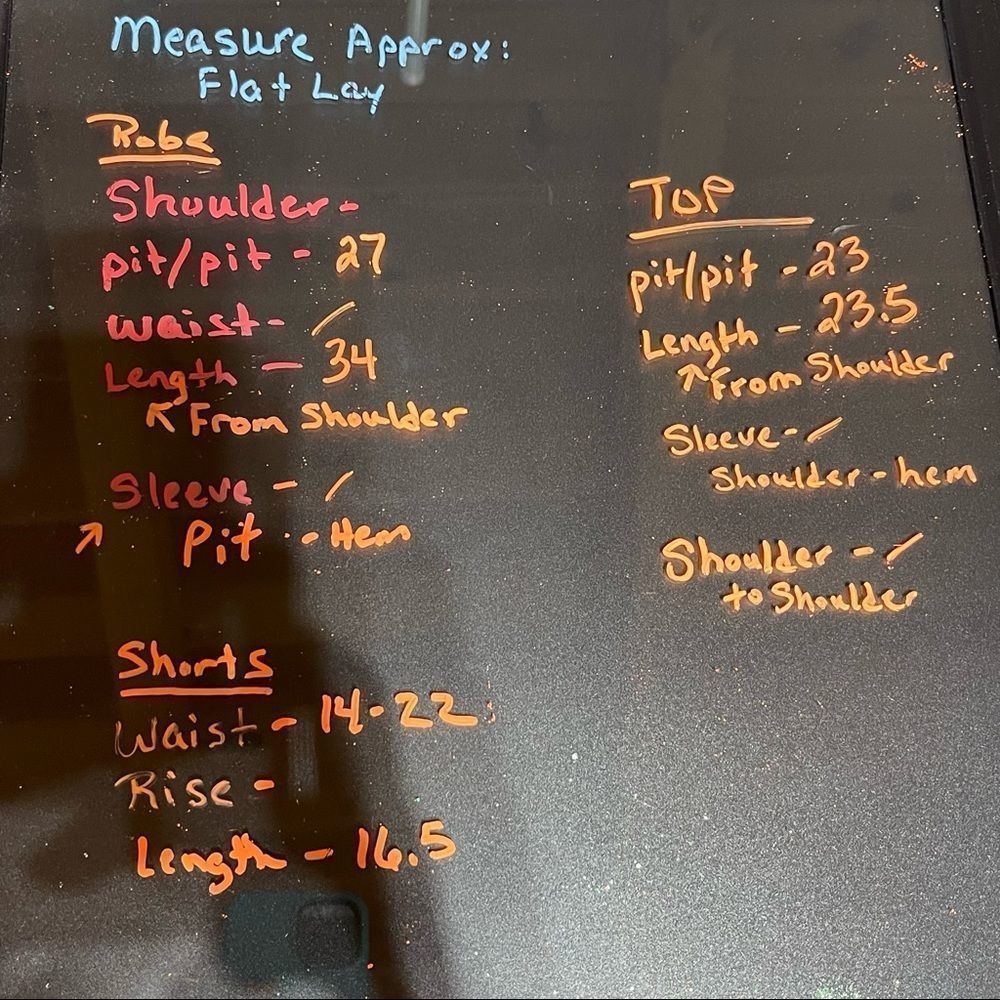 Measure Approx:
Flat Lay
Robe
Shoulder -
pit/pit - 27
waist - /
Length - 34
↖ From Shoulder
Sleeve - /
↗ Pit - Hem
Shorts
Waist - 14-22
Rise -
Length - 16.5
TOP
pit/pit - 23
Length - 23.5
↗ From Shoulder
Sleeve - /
Shoulder - hem
Shoulder - /
to Shoulder